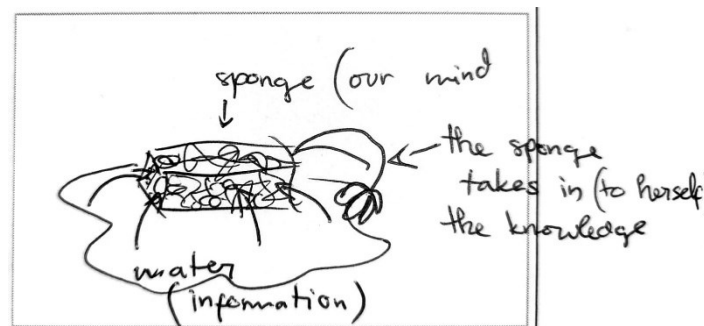 sponge (our mind
the sponge
takes in (to herself
the knowledge
water
(information)